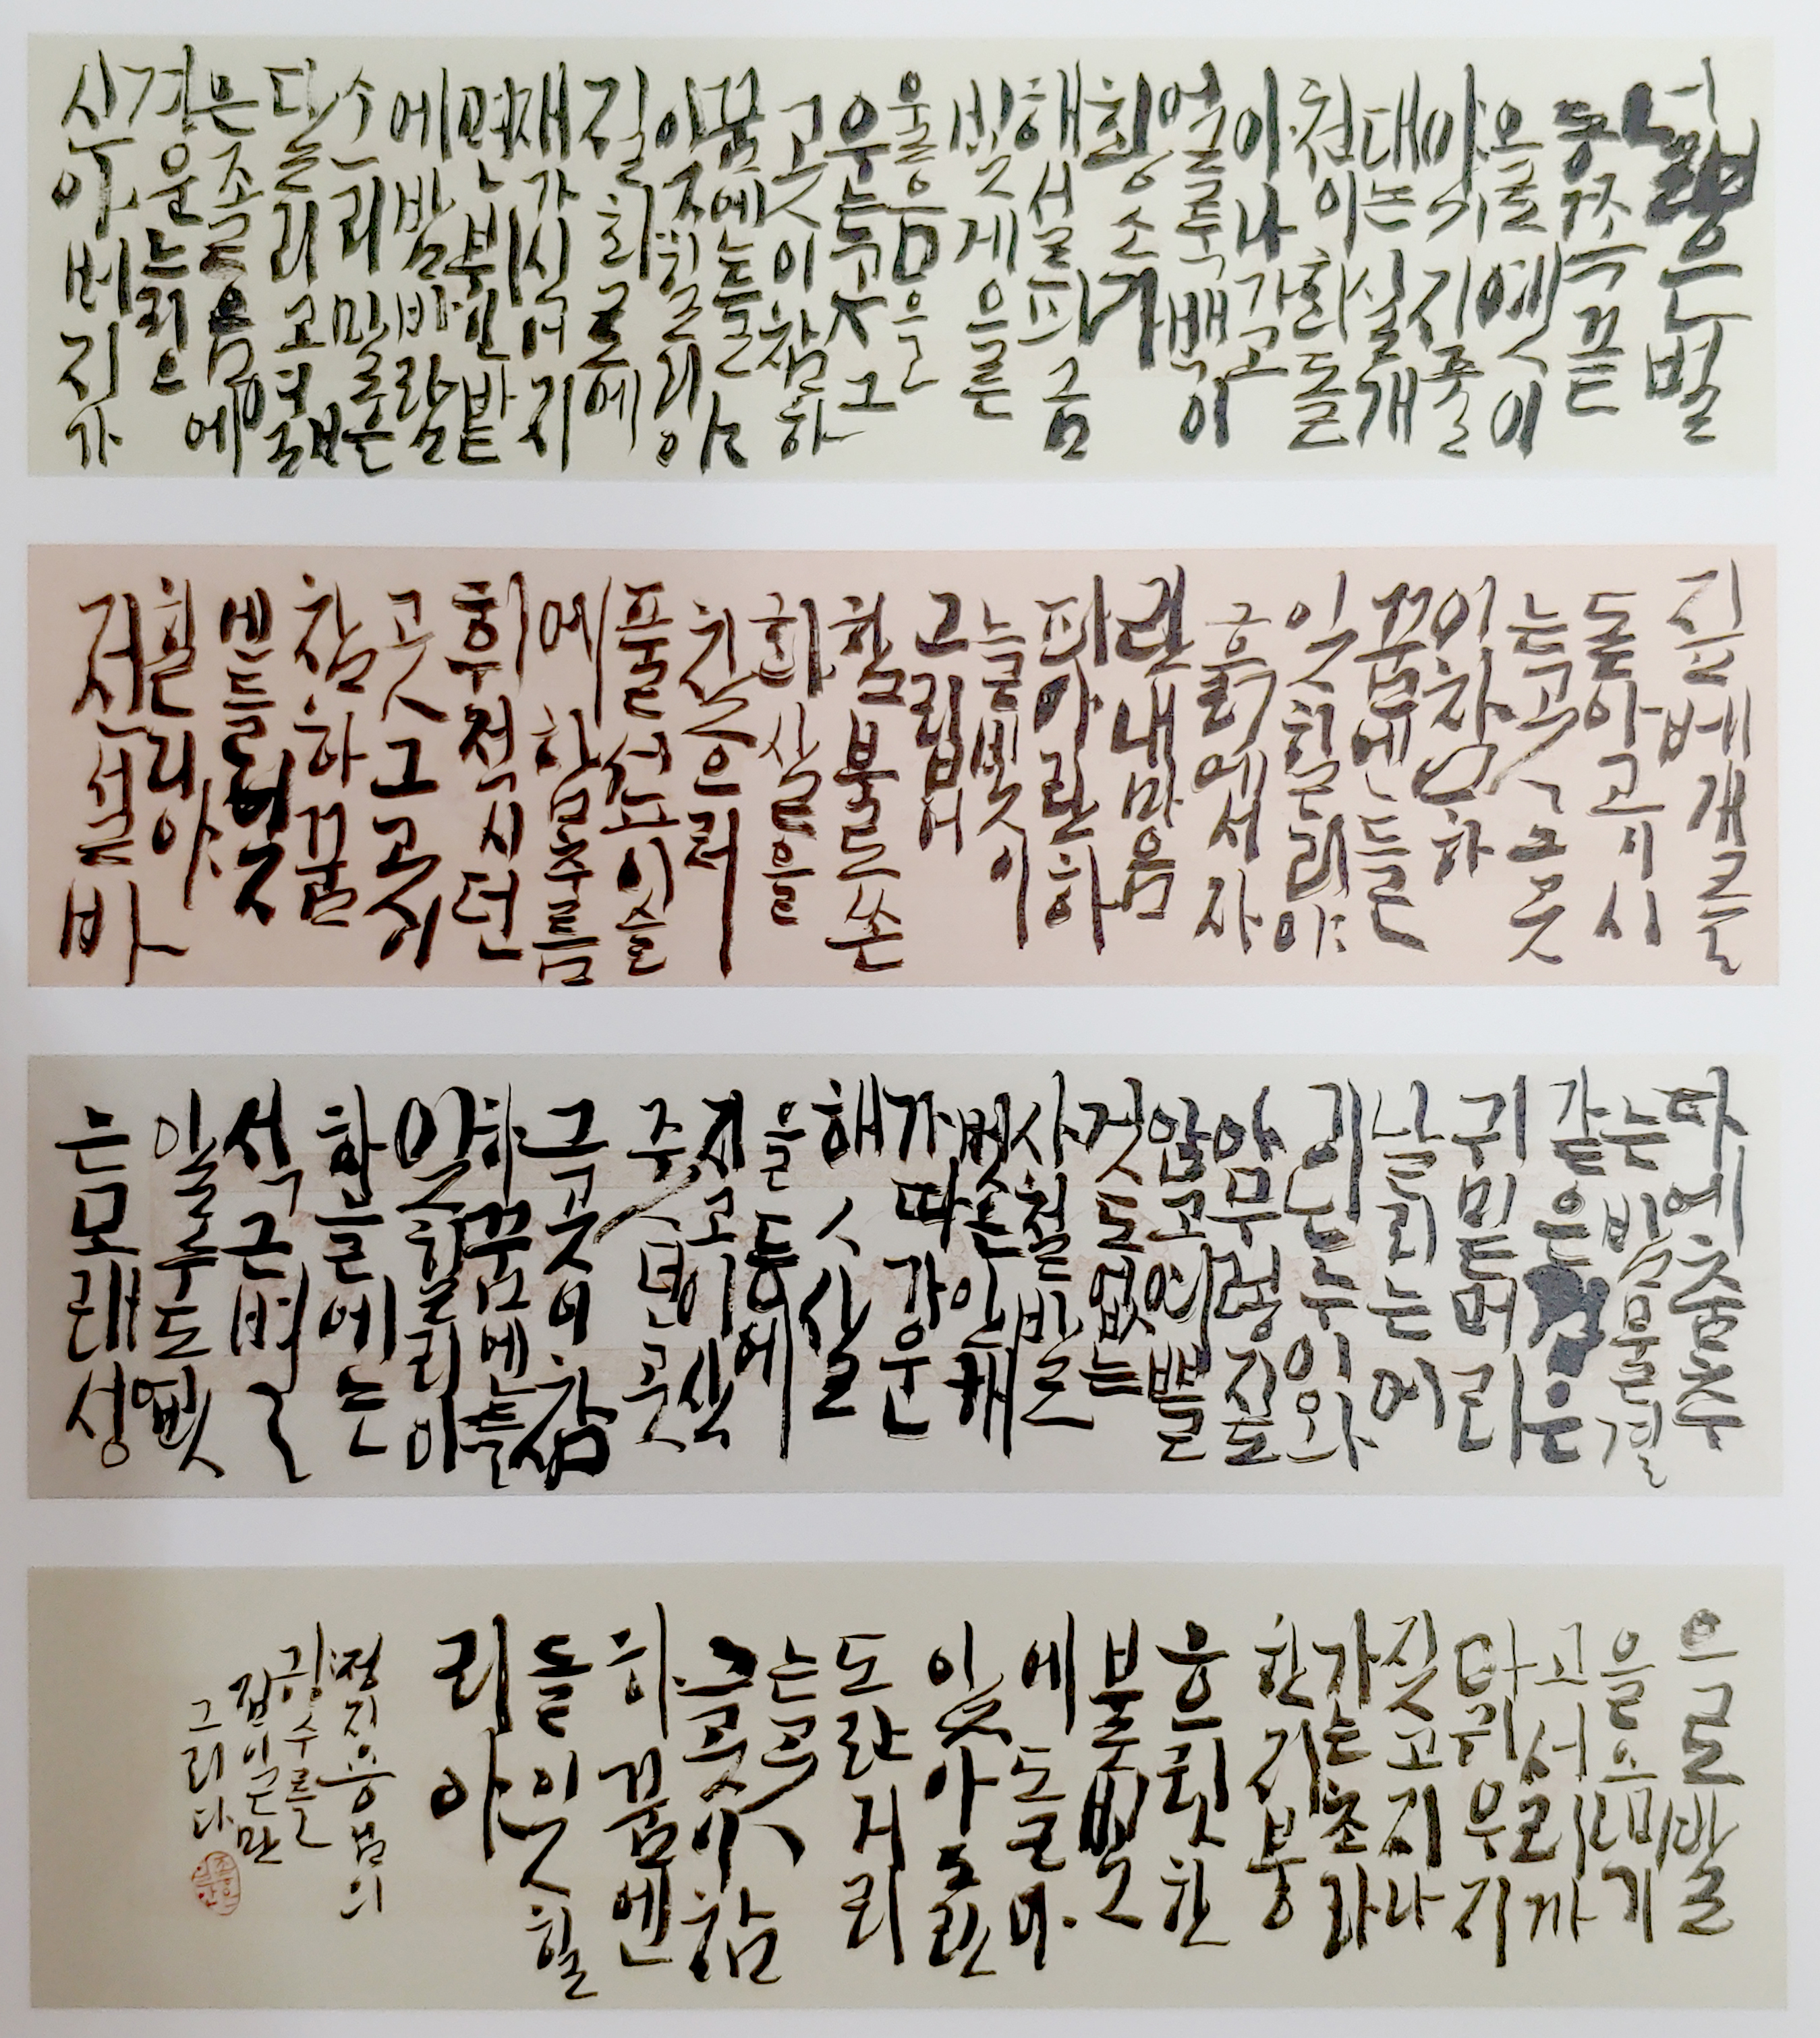 넓은벌
동쪽끝
으로옛이
야기지줄
대는실개
천이휘돌
아나가고
얼룩백이
황소가
해설피금
빛게으른
울음을
우는곳그
곳이참하
꿈에들
잊힐리야
질화로에
재가식어지
면뷔인밭
에밤바람
소리말을
달리고엷
은조름에
겨운늙으
신아버지가
짚베개를
돋아고이시
는곳그곳
이참하
꿈엔들
잊힐리야
흙에서자
란내마음
파아란하
늘빛이
그립어
함부로쏜
화살을
찾으러
풀섶이슬
에함추름
휘적시던
곳그곳이
참하꿈
엔들잊
힐리야
전설바
다에춤추
는밤물결
같은검은
귀밑머리
날리는어
린누이와
아무렇지
않고예쁠
것도없는
사철발
벗은안해
가따가운
해ㅅ살
을등에
지고이삭
줏던곳
그곳이참
하꿈엔들
잊힐리야
하늘에는
석근별
알수도없
는모래성
으로발
을옴기
고서리까
마귀우지
짖고지나
가는초라
한지붕
흐릿한
불빛
에돌아
앉아도란
도란거리
는곳
그곳이참
하꿈엔
들잊힐
리야
정지용님의
향수를
그리다